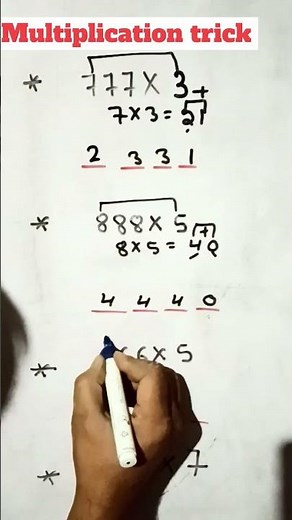 Multiplication trick
* 777 × 3 +
7 × 3 = 21
2 3 3 1
* 888 × 5 +
8 × 5 = 40
4 4 4 0
* 6 × 5
* × 7